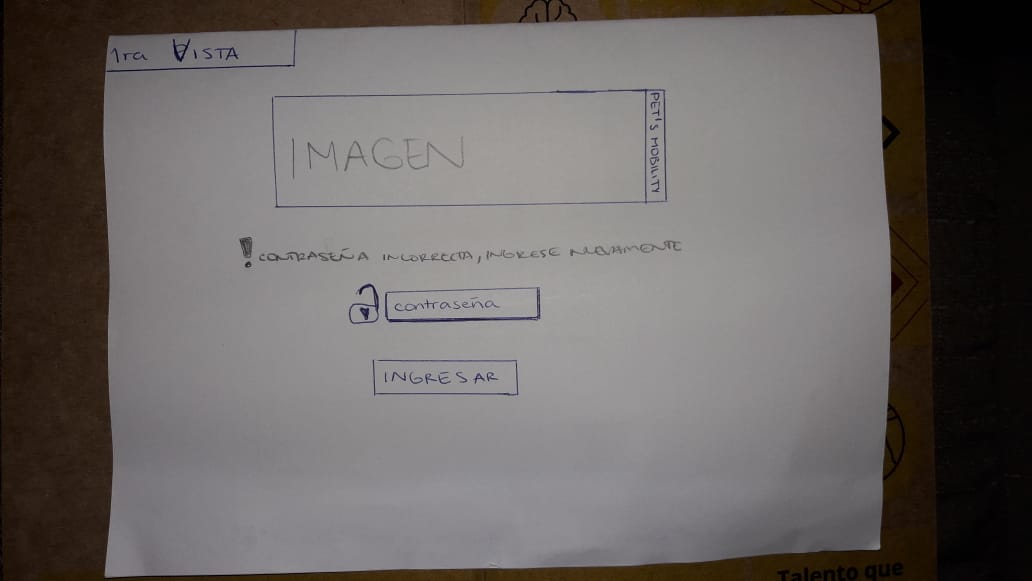 1ra VISTA
IMAGEN
PET'S MOBILITY
! CONTRASEÑA INCORRECTA, INGRESE NUEVAMENTE
contraseña
INGRESAR
Talento que